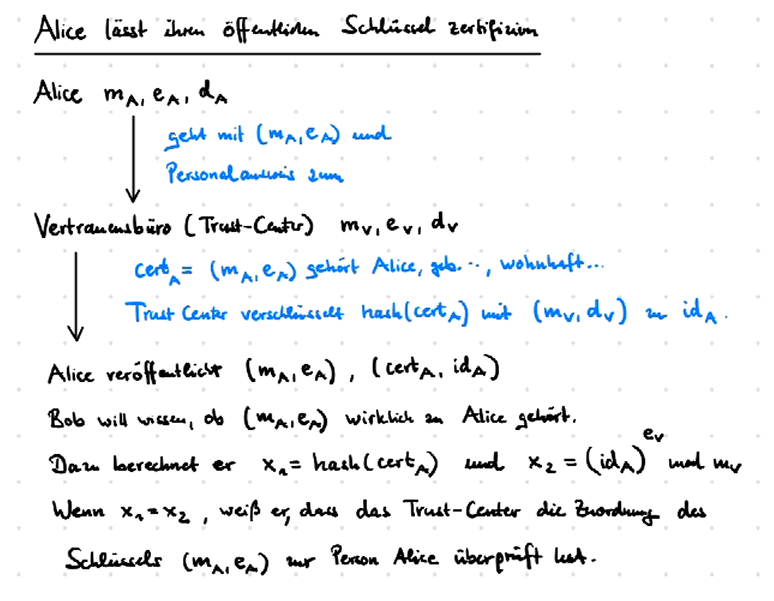 Alice lässt ihren öffentlichen Schlüssel zertifizieren
Alice m_A, e_A, d_A
geht mit (m_A, e_A) und
Personalausweis zum
Vertrauensbüro (Trust-Center) m_V, e_V, d_V
cert_A = (m_A, e_A) gehört Alice, geb. ..., wohnhaft...
Trust Center verschlüsselt hash(cert_A) mit (m_V, d_V) zu id_A.
Alice veröffentlicht (m_A, e_A), (cert_A, id_A)
Bob will wissen, ob (m_A, e_A) wirklich zu Alice gehört.
Dazu berechnet er x_1 = hash(cert_A) und x_2 = (id_A)^e_V mod m_V
Wenn x_1 = x_2, weiß er, dass das Trust-Center die Zuordnung des
Schlüssels (m_A, e_A) zur Person Alice überprüft hat.